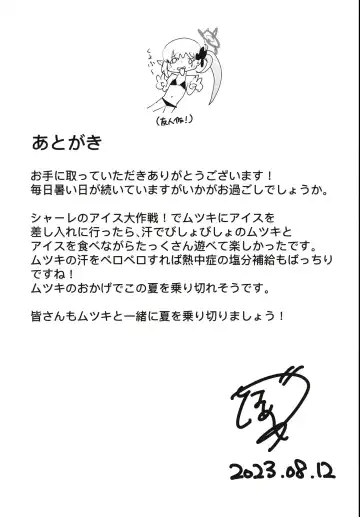 くるふ〜
(友人作!)
あとがき
お手に取っていただきありがとうございます！
毎日暑い日が続いていますがいかがお過ごしでしょうか。
シャーレのアイス大作戦！でムツキにアイスを
差し入れに行ったら、汗でびしょびしょのムツキと
アイスを食べながらたっくさん遊べて楽しかったです。
ムツキの汗をペロペロすれば熱中症の塩分補給もばっちり
ですね！
ムツキのおかげでこの夏を乗り切れそうです。
皆さんもムツキと一緒に夏を乗り切りましょう！
2023.08.12